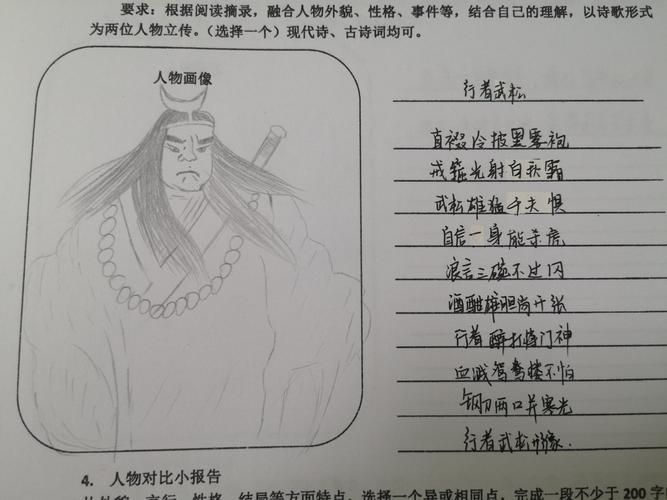 要求：根据阅读摘录，融合人物外貌、性格、事件等，结合自己的理解，以诗歌形式
为两位人物立传。（选择一个）现代诗、古诗词均可。
人物画像
行者武松
直裰冷披黑雾袍
戒箍光射白秋霜
武松雄猛千夫惧
自信一身能杀虎
浪言三碗不过冈
酒酣雄胆尚开张
行者醉打蒋门神
血溅鸳鸯楼不怕
钢刀两口并寒光
行者武松形象.
4. 人物对比小报告
从外貌、言行、性格、结局等方面特点，选择一个异或相同点，完成一段不少于 200 字